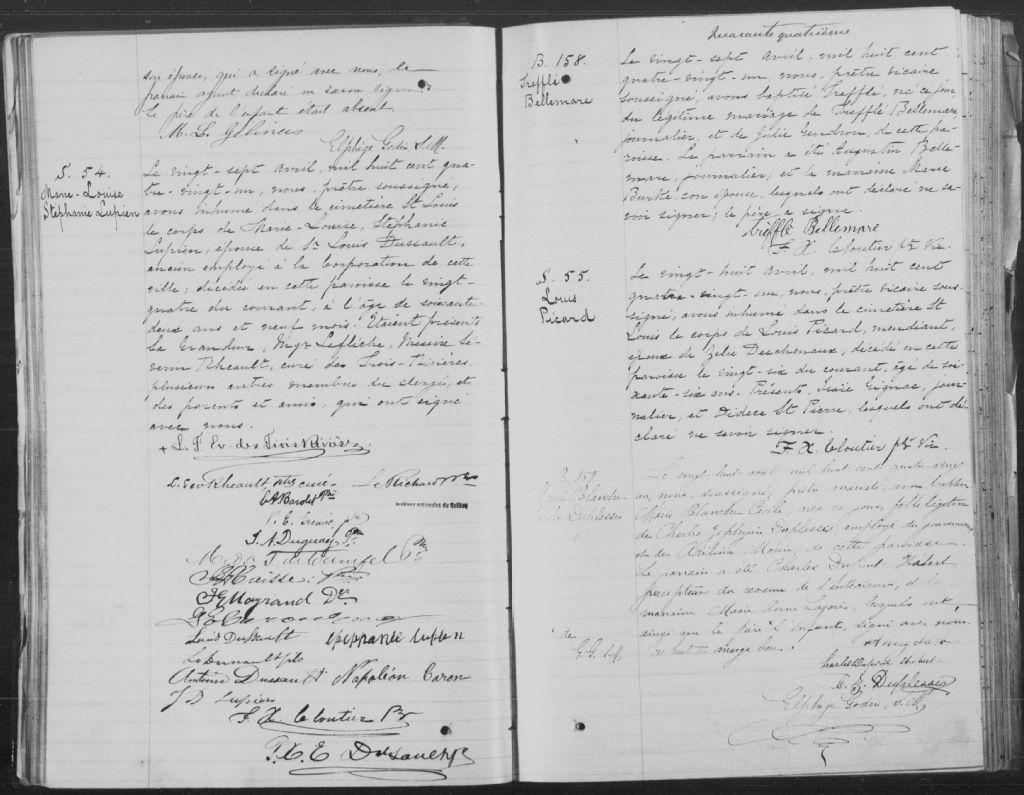 son épouse, qui a signé avec nous, le
parrain ayant déclaré ne savoir signer.
Le père de l'enfant était absent.
M. L. Gélinas
Elphège Godin S.M.
S. 54.
Marie-Louise
Stéphanie Lupien
Le vingt-sept avril, mil huit cent qua-
tre-vingt-un, nous, prêtre soussigné,
avons inhumé dans le cimetière St Louis
le corps de Marie-Louise, Stéphanie
Lupien, épouse de Sr Louis Dussault,
ancien employé à la Corporation de cette
ville; décédée en cette paroisse le vingt-
quatre du courant, à l'âge de soixante-
deux ans et neuf mois. Etaient présents
Sa Grandeur, Mgr Laflèche, Messire Sé-
verin Rheault, curé des Trois-Rivières,
plusieurs autres membres du clergé, et
des parents et amis, qui ont signé
avec nous.
+ L. F. Ev. des Trois Rivières
L. Sev Rheault Ptre curé
Le Richard
archives nationales du Québec
J. A. Duguay
Louis Dussault
épiphanée lupien
L. Dussault fils
Antoine Dussault Napoléon Caron
J D Lupien
F. X. Cloutier Ptr
Quarante quatrième
B. 158.
Trefflé
Bellemare
Le vingt-sept avril, mil huit cent
quatre-vingt-un, nous, prêtre vicaire
soussigné, avons baptisé Trefflé, né ce jour
du légitime mariage de Trefflé Bellemare
journalier, et de Julie Gendron, de cette pa-
roisse. Le parrain a été Augustin Belle-
mare, journalier, et la marraine Marie
son épouse, lesquels ont déclaré ne sa-
voir signer; le père a signé.
Trefflé Bellemare
F. X. Cloutier ptr Vic.
S. 55.
Louis
Picard
Le vingt-huit avril, mil huit cent
quatre-vingt-un, nous, prêtre vicaire sous-
signé, avons inhumé dans le cimetière St
Louis le corps de Louis Picard, mendiant,
époux de Zélie Deschenaux; décédé en cette
paroisse le vingt-six du courant, âgé de soi-
xante-six ans. Présents, Isaïe Gignac, jour-
nalier, et Didace St Pierre, lesquels ont dé-
claré ne savoir signer.
F. X. Cloutier ptr Vic
B. 159.
Marie Blanche
Duplessis
Le vingt huit avril mil huit cent quatre vingt
un, nous, soussigné, prêtre mariste, avons baptisé
Marie Blanche Cécile, née ce jour, fille légitime
de Charles Zéphirin Duplessis, employé du gouvernement
et de de cette paroisse.
Le parrain a été Charles Dupont Hébert
percepteur du revenu de l'intérieur, et la
marraine Marie Anne lesquels ont,
ainsi que le père de l'enfant, signé avec nous.
en marge bon.
Charles Dupont Hébert
C. Z. Duplessis
Elphège Godin, S. M.